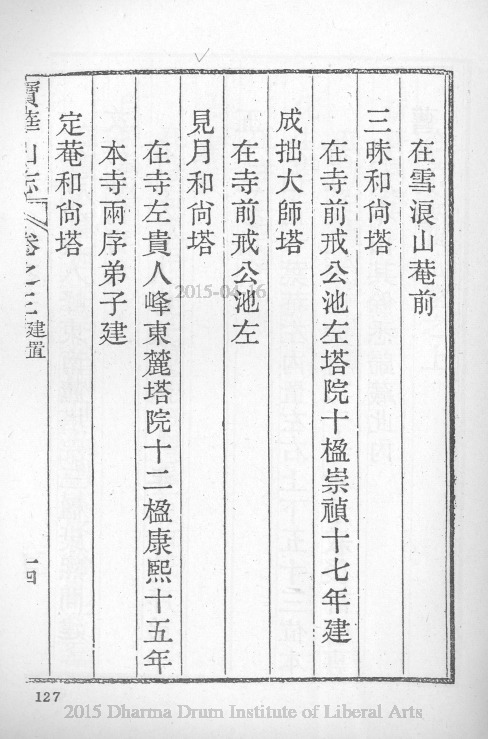 在雪浪山菴前
三昧和尙塔
在寺前戒公池左塔院十楹崇禎十七年建
成拙大師塔
在寺前戒公池左
見月和尙塔
在寺左貴人峰東麓塔院十二楹康熙十五年
本寺兩序弟子建
定菴和尙塔
寶華山志 卷之三 建置 一四
127
2015-04-16
2015 Dharma Drum Institute of Liberal Arts